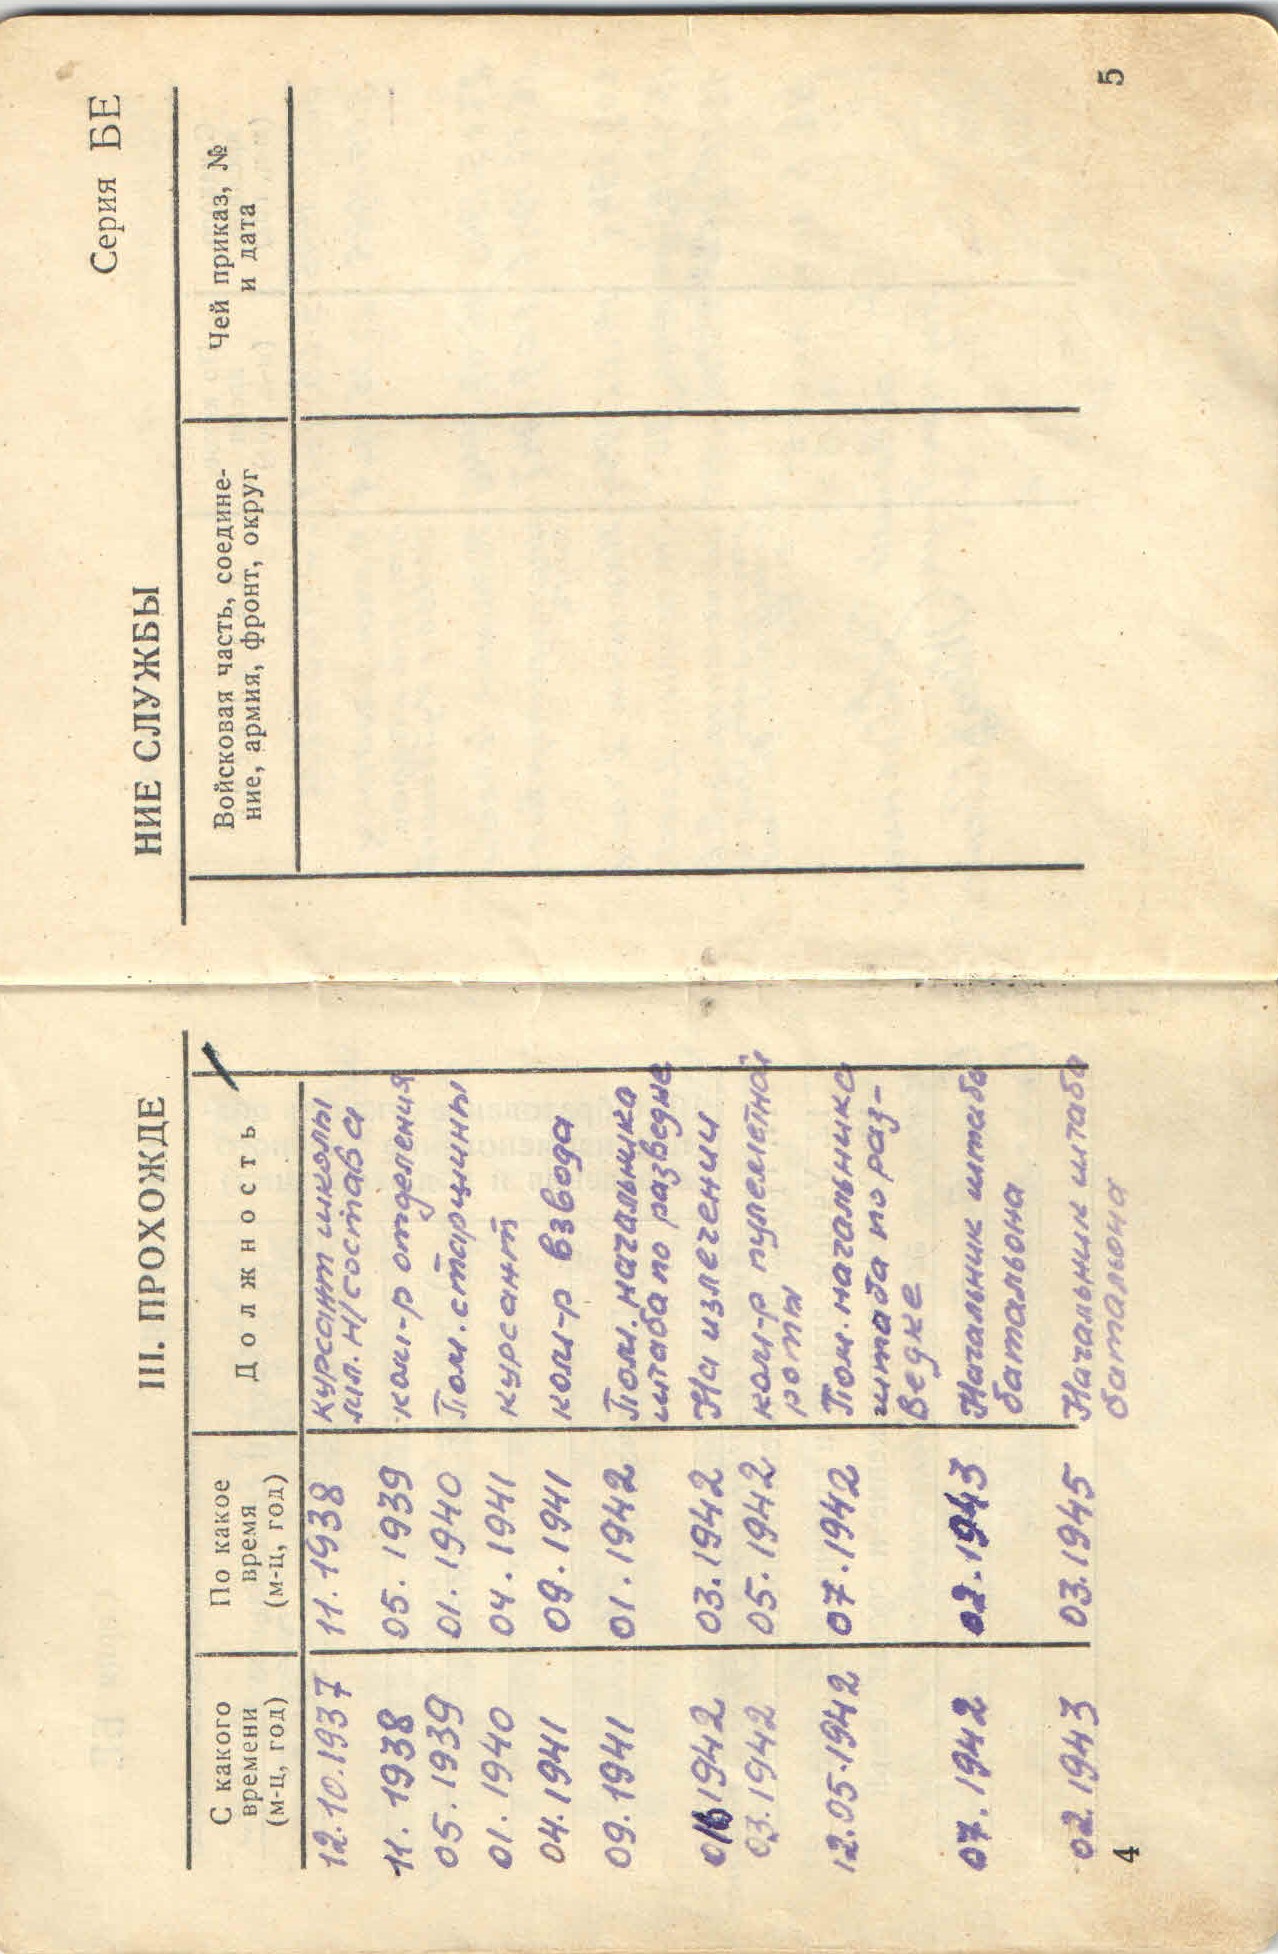 Серия БЕ
III. ПРОХОЖДЕ
НИЕ СЛУЖБЫ
С какого
времени
(м-ц, год)
По какое
время
(м-ц, год)
Должность
Войсковая часть, соедине-
ние, армия, фронт, округ
Чей приказ, №
и дата
12.10.1937 11.1938 курсант школы
мл. н/состава
11.1938 05.1939 ком-р отделения
05.1939 01.1940 Пом. старшины
01.1940 04.1941 курсант
04.1941 09.1941 ком-р взвода
09.1941 01.1942 Пом. начальника
штаба по разведке
1942 03.1942 На излечении
03.1942 05.1942 ком-р пулеметной
роты
12.05.1942 07.1942 Пом. начальника
штаба по раз-
ведке
07.1942 02.1943 Начальник штаба
батальона
02.1943 03.1945 Начальник штаба
батальона
4
5